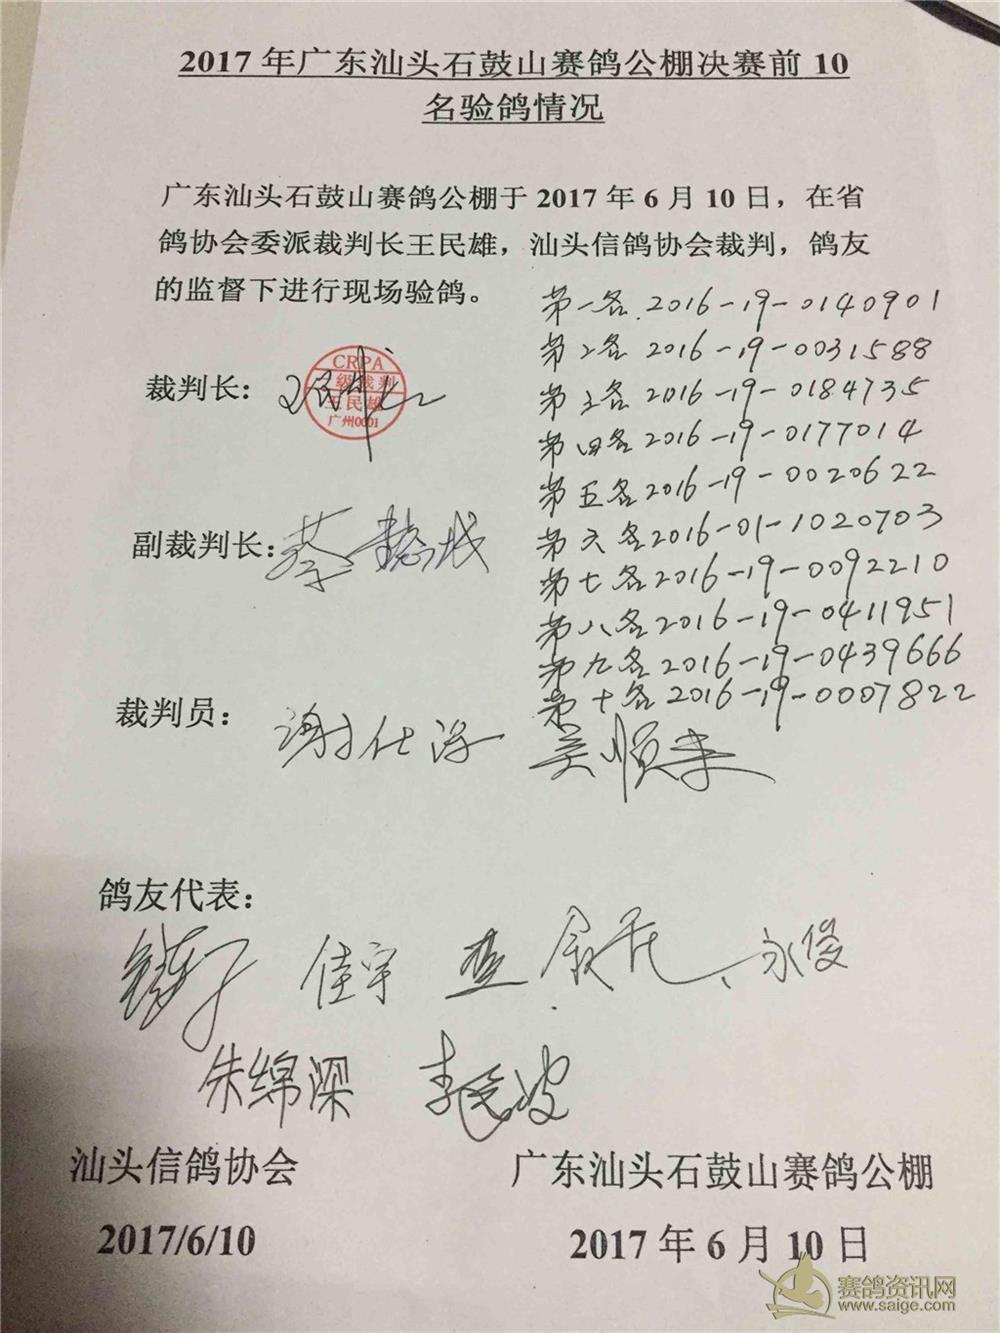 2017年广东汕头石鼓山赛鸽公棚决赛前10
名验鸽情况
广东汕头石鼓山赛鸽公棚于2017年6月10日，在省
鸽协会委派裁判长王民雄，汕头信鸽协会裁判，鸽友
的监督下进行现场验鸽。
第一名.2016-19-0140901
第2名2016-19-0031588
第3名2016-19-0184735
第四名2016-19-0177014
第五名2016-19-0020622
第六名2016-01-1020703
第七名2016-19-0092210
第八名2016-19-0411951
第九名2016-19-0439666
第十名2016-19-0007822
裁判长：王民雄
CRPA
级裁判
王民雄
广州0001
副裁判长：蔡
裁判员：谢仕 吴顺
鸽友代表：
佳宇 永俊
朱绵深 李
汕头信鸽协会
2017/6/10
广东汕头石鼓山赛鸽公棚
2017年6月10日
赛鸽资讯网
www.saige.com